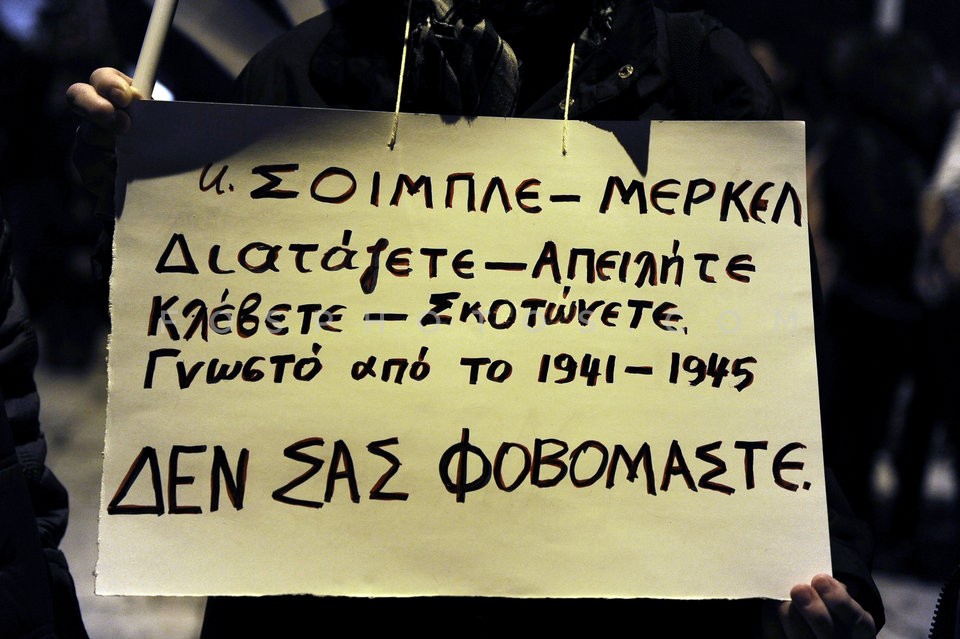 κ. ΣΟΙΜΠΛΕ – ΜΕΡΚΕΛ
Διατάζετε – Απειλήτε
Κλέβετε – Σκοτώνετε.
Γνωστό από το 1941 – 1945
ΔΕΝ ΣΑΣ ΦΟΒΟΜΑΣΤΕ.